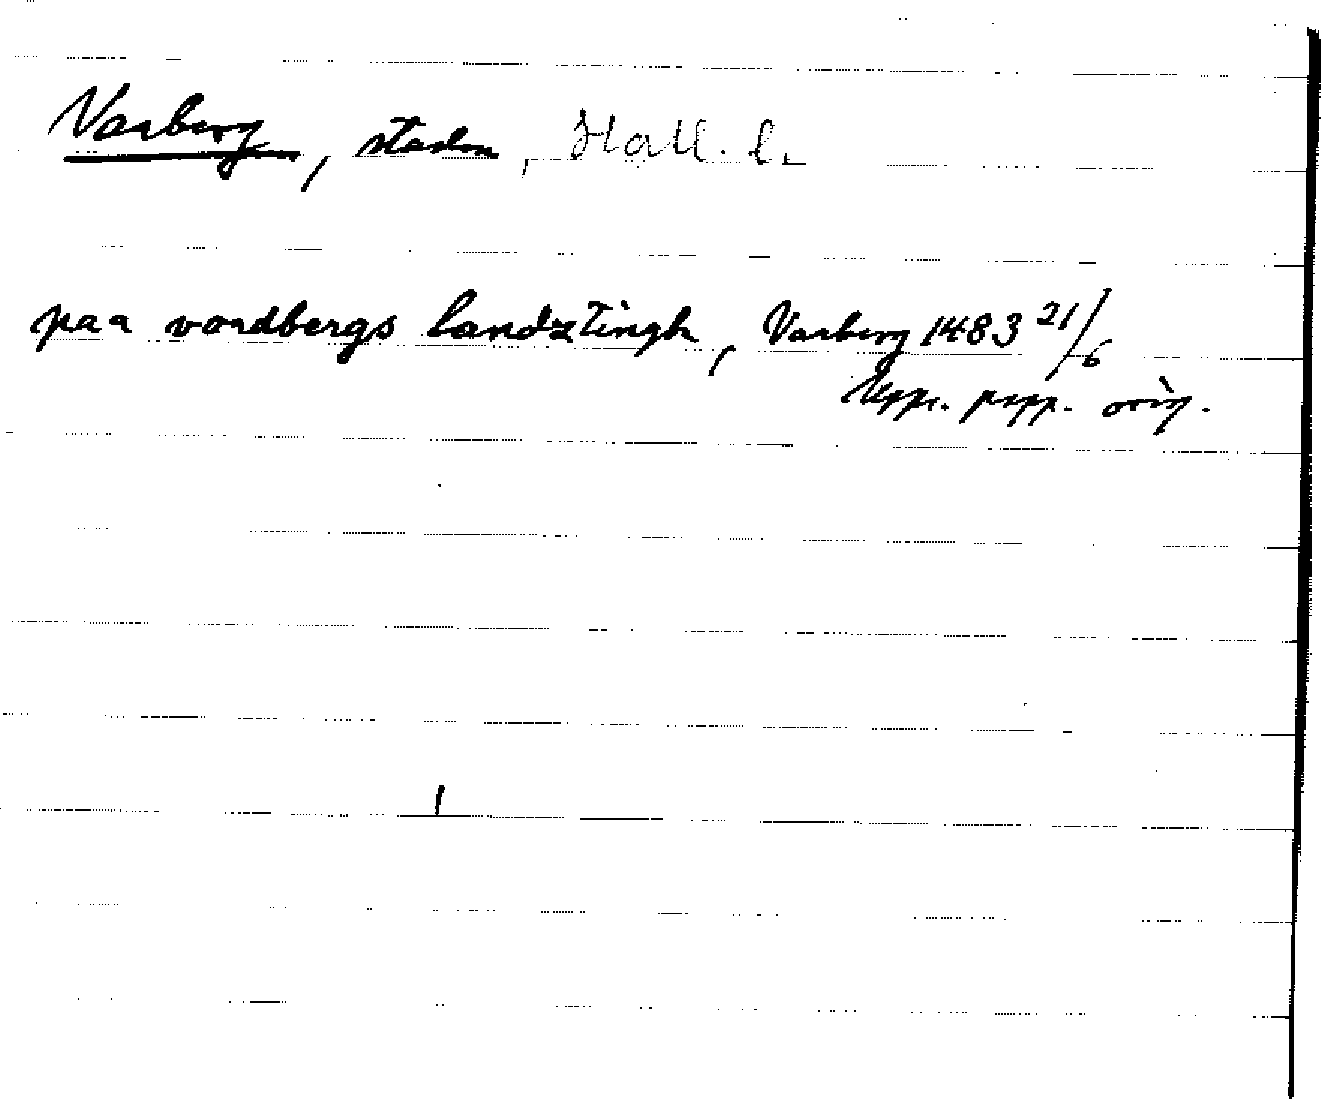 Varberg, staden, Hall. l.
paa vardbergs landztingh, Varberg 1483 21/6
Upps. papp. orig.